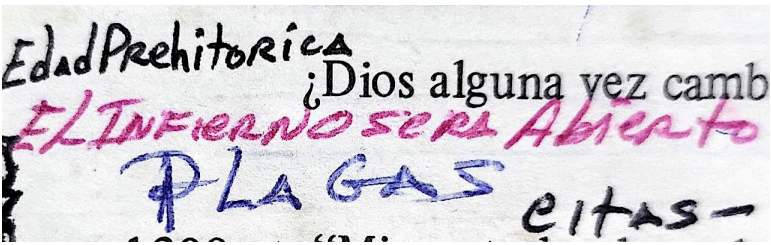 EdadPrehitorica
¿Dios alguna vez camb
EL INFIERNO SERA Abierto
PLAGAS
citas-